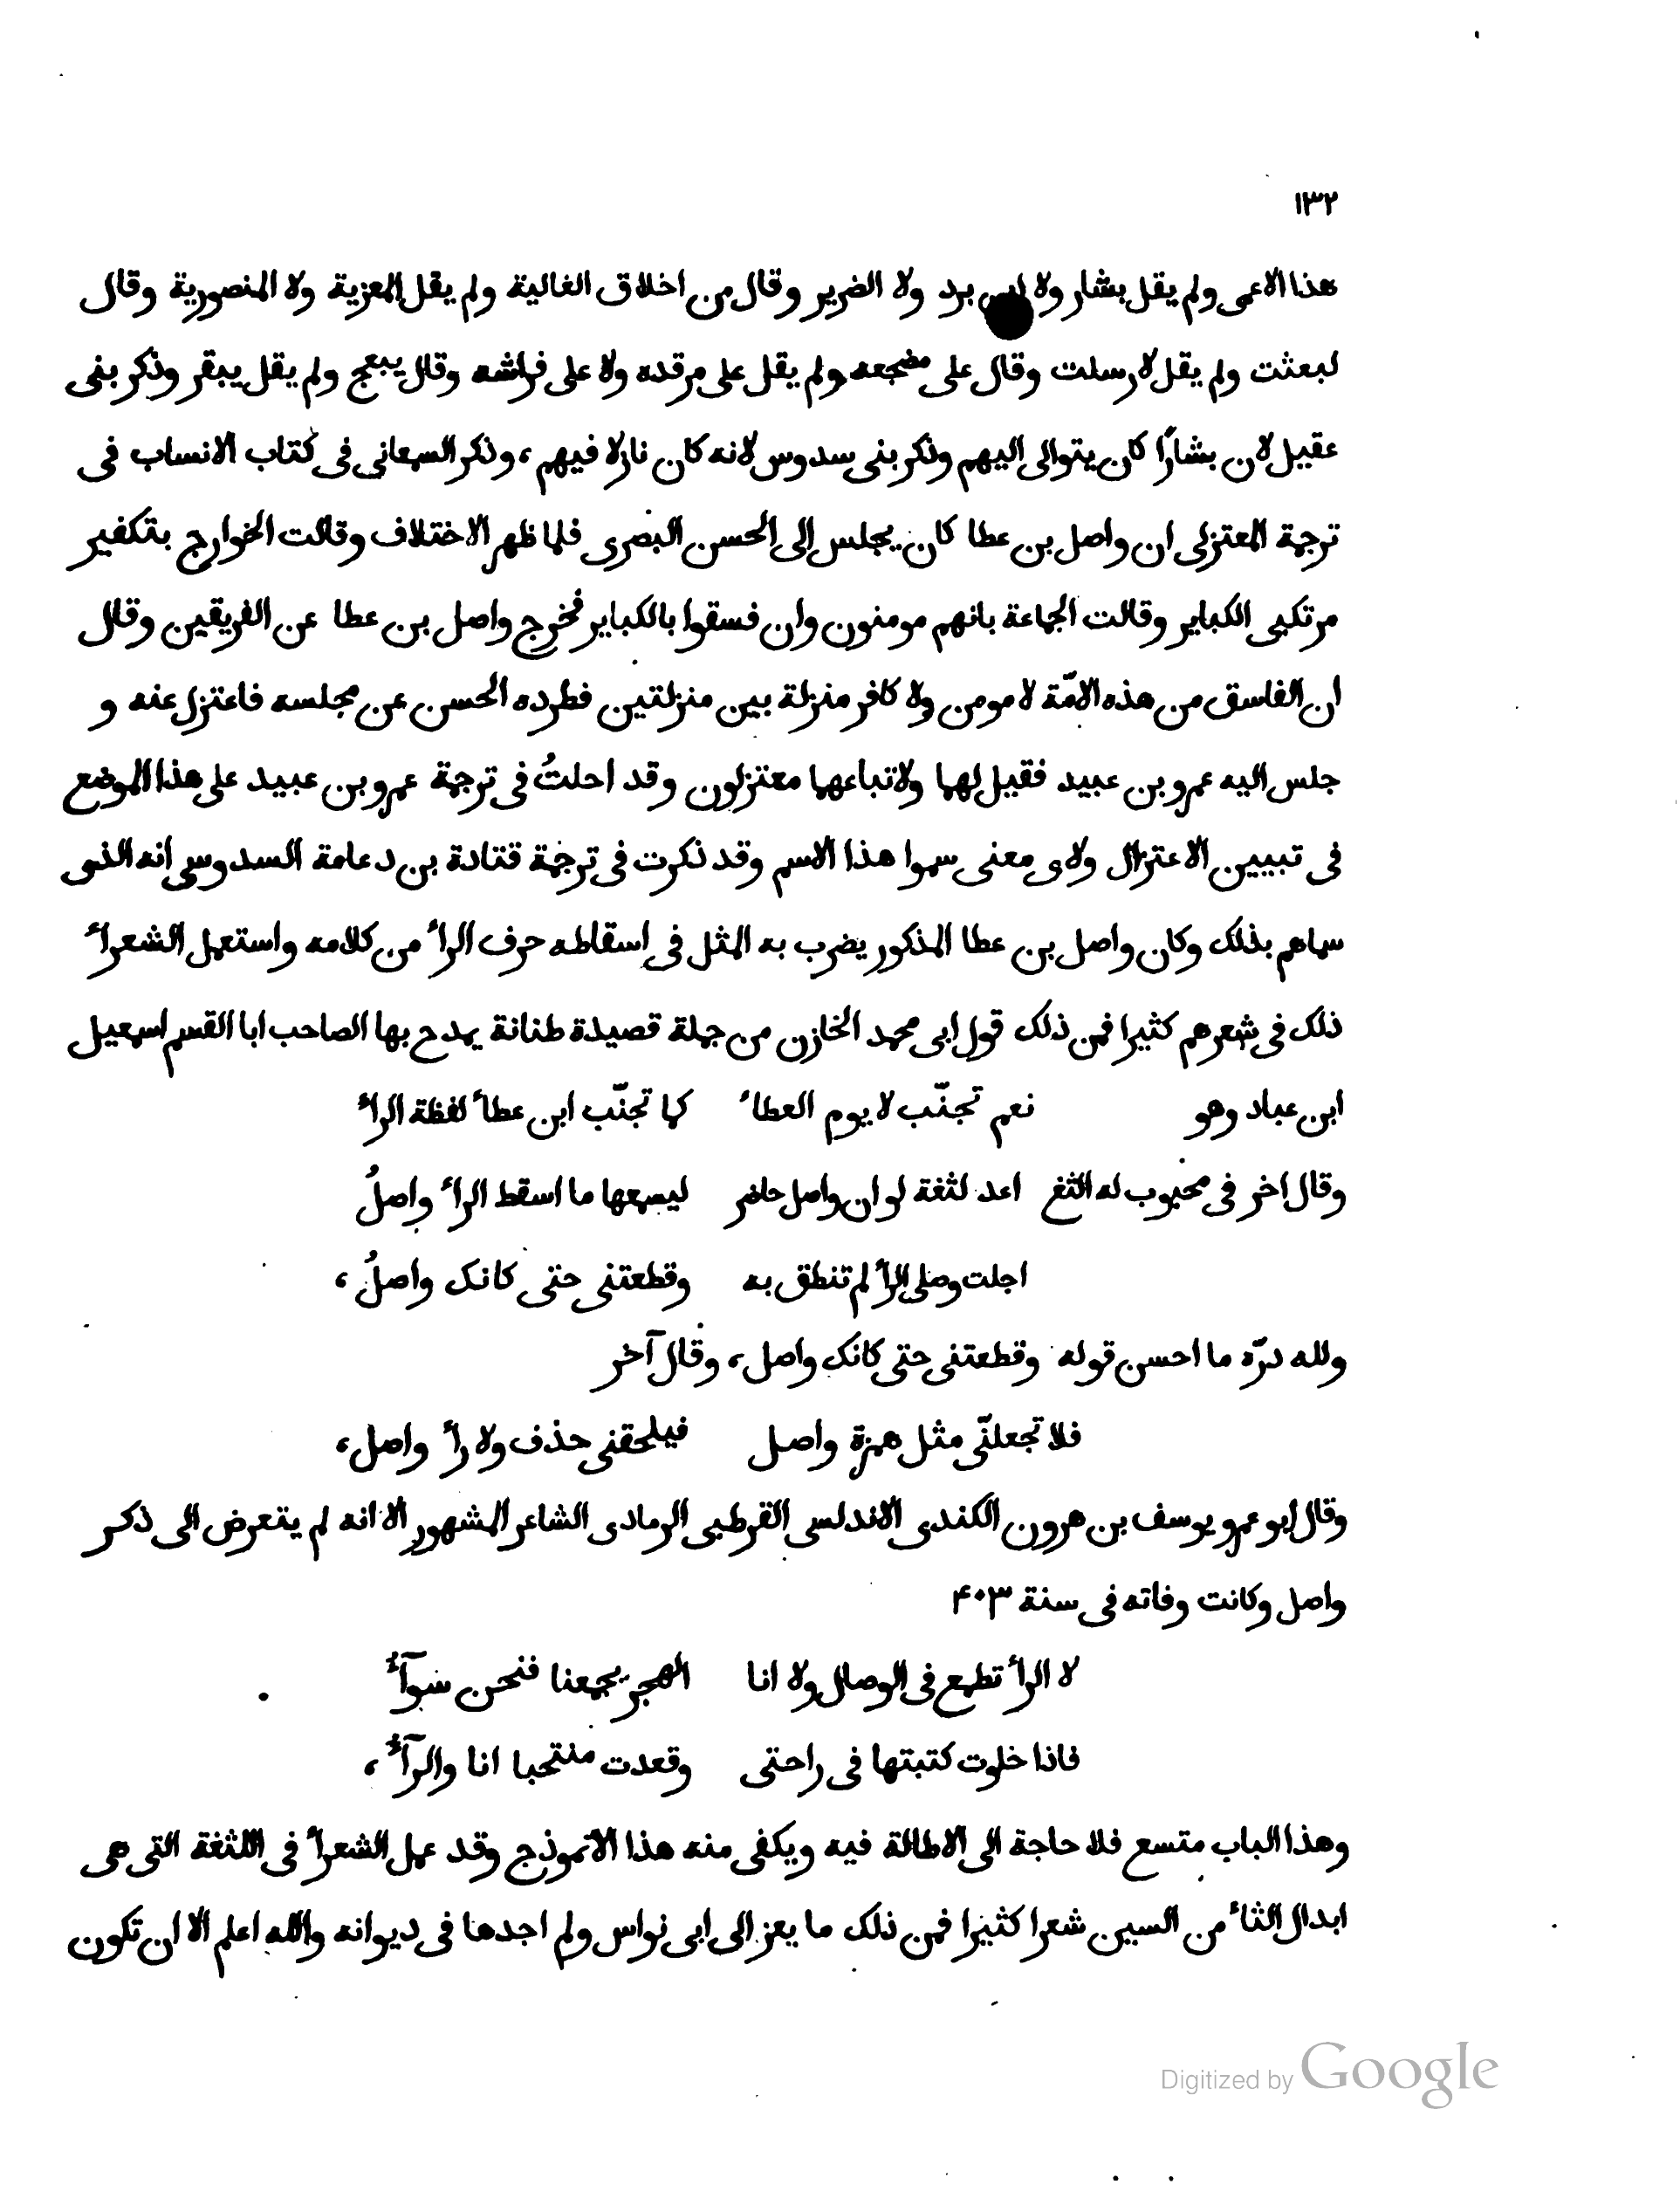 ١٣٢
هذا الاعمى ولم يقل بشار ولا ابن برد ولا الضرير وقال من اخلاق الغالية ولم يقل المعزية ولا المنصورية وقال
لبعثت ولم يقل لارسلت وقال على مضجعه ولم يقل على مرقده ولا على فراشه وقال يبعج ولم يقل يبقر وذكر بنى
عقيل لان بشارًا كان يتوالى اليهم وذكر بنى سدوس لانه كان نازلا فيهم، وذكر السمعانى فى كتاب الانساب فى
ترجمة المعتزلى ان واصل بن عطا كان يجلس الى الحسن البصرى فلما ظهر الاختلاف وقالت الخوارج بتكفير
مرتكبى الكباير وقالت الجماعة بانهم مومنون وان فسقوا بالكباير فخرج واصل بن عطا عن الفريقين وقال
ان الفاسق من هذه الامّة لا مومن ولا كافر منزلة بين منزلتين فطرده الحسن عن مجلسه فاعتزل عنه و
جلس اليه عمرو بن عبيد فقيل لهما ولاتباعهما معتزلون وقد احلتُ فى ترجمة عمرو بن عبيد على هذا الموضع
فى تبيين الاعتزال ولاى معنى سموا هذا الاسم وقد ذكرت فى ترجمة قتادة بن دعامة السدوسى انه الذى
سماهم بذلك وكان واصل بن عطا المذكور يضرب به المثل فى اسقاطه حرف الراﺀ من كلامه واستعمل الشعراﺀ
ذلك فى شعرهم كثيرا فمن ذلك قول ابى محمد الخازن من جملة قصيدة طنانة يمدح بها الصاحب ابا القسم اسمعيل
ابن عباد وهو نعم تجنّب لا يوم العطاﺀ كما تجنّب ابن عطاﺀ لفظة الراﺀ
وقال اخر فى محبوب له الثغ اعد لثغة لو ان واصل حاضر ليسمعها ما اسقط الراﺀ واصلُ
اجلت وصلى الراﺀ لم تنطق به وقطعتنى حتى كانك واصلُ،
ولله درّه ما احسن قوله وقطعتنى حتى كانك واصل، وقال آخر
فلا تجعلنّى مثل همزة واصل فيلحقنى حذف ولا راﺀ واصل،
وقال ابو عمرو يوسف بن هرون الكندى الاندلسى القرطبى الرمادى الشاعر المشهور الا انه لم يتعرض الى ذكر
واصل وكانت وفاته فى سنة ۴٠٣
لا الراﺀ تطمع فى الوصال ولا انا الهجر يجمعنا فنحن سوآﺀ
فاذا خلوت كتبتها فى راحتى وقعدت منتحبا انا والرآﺀ،
وهذا الباب متسع فلا حاجة الى الاطالة فيه ويكفى منه هذا الانموذج وقد عمل الشعراﺀ فى اللثغة التى هى
ابدال الثاﺀ من السين شعرا كثيرا فمن ذلك ما يعز الى ابى نواس ولم اجدها فى ديوانه والله اعلم الا ان تكون
Digitized by Google